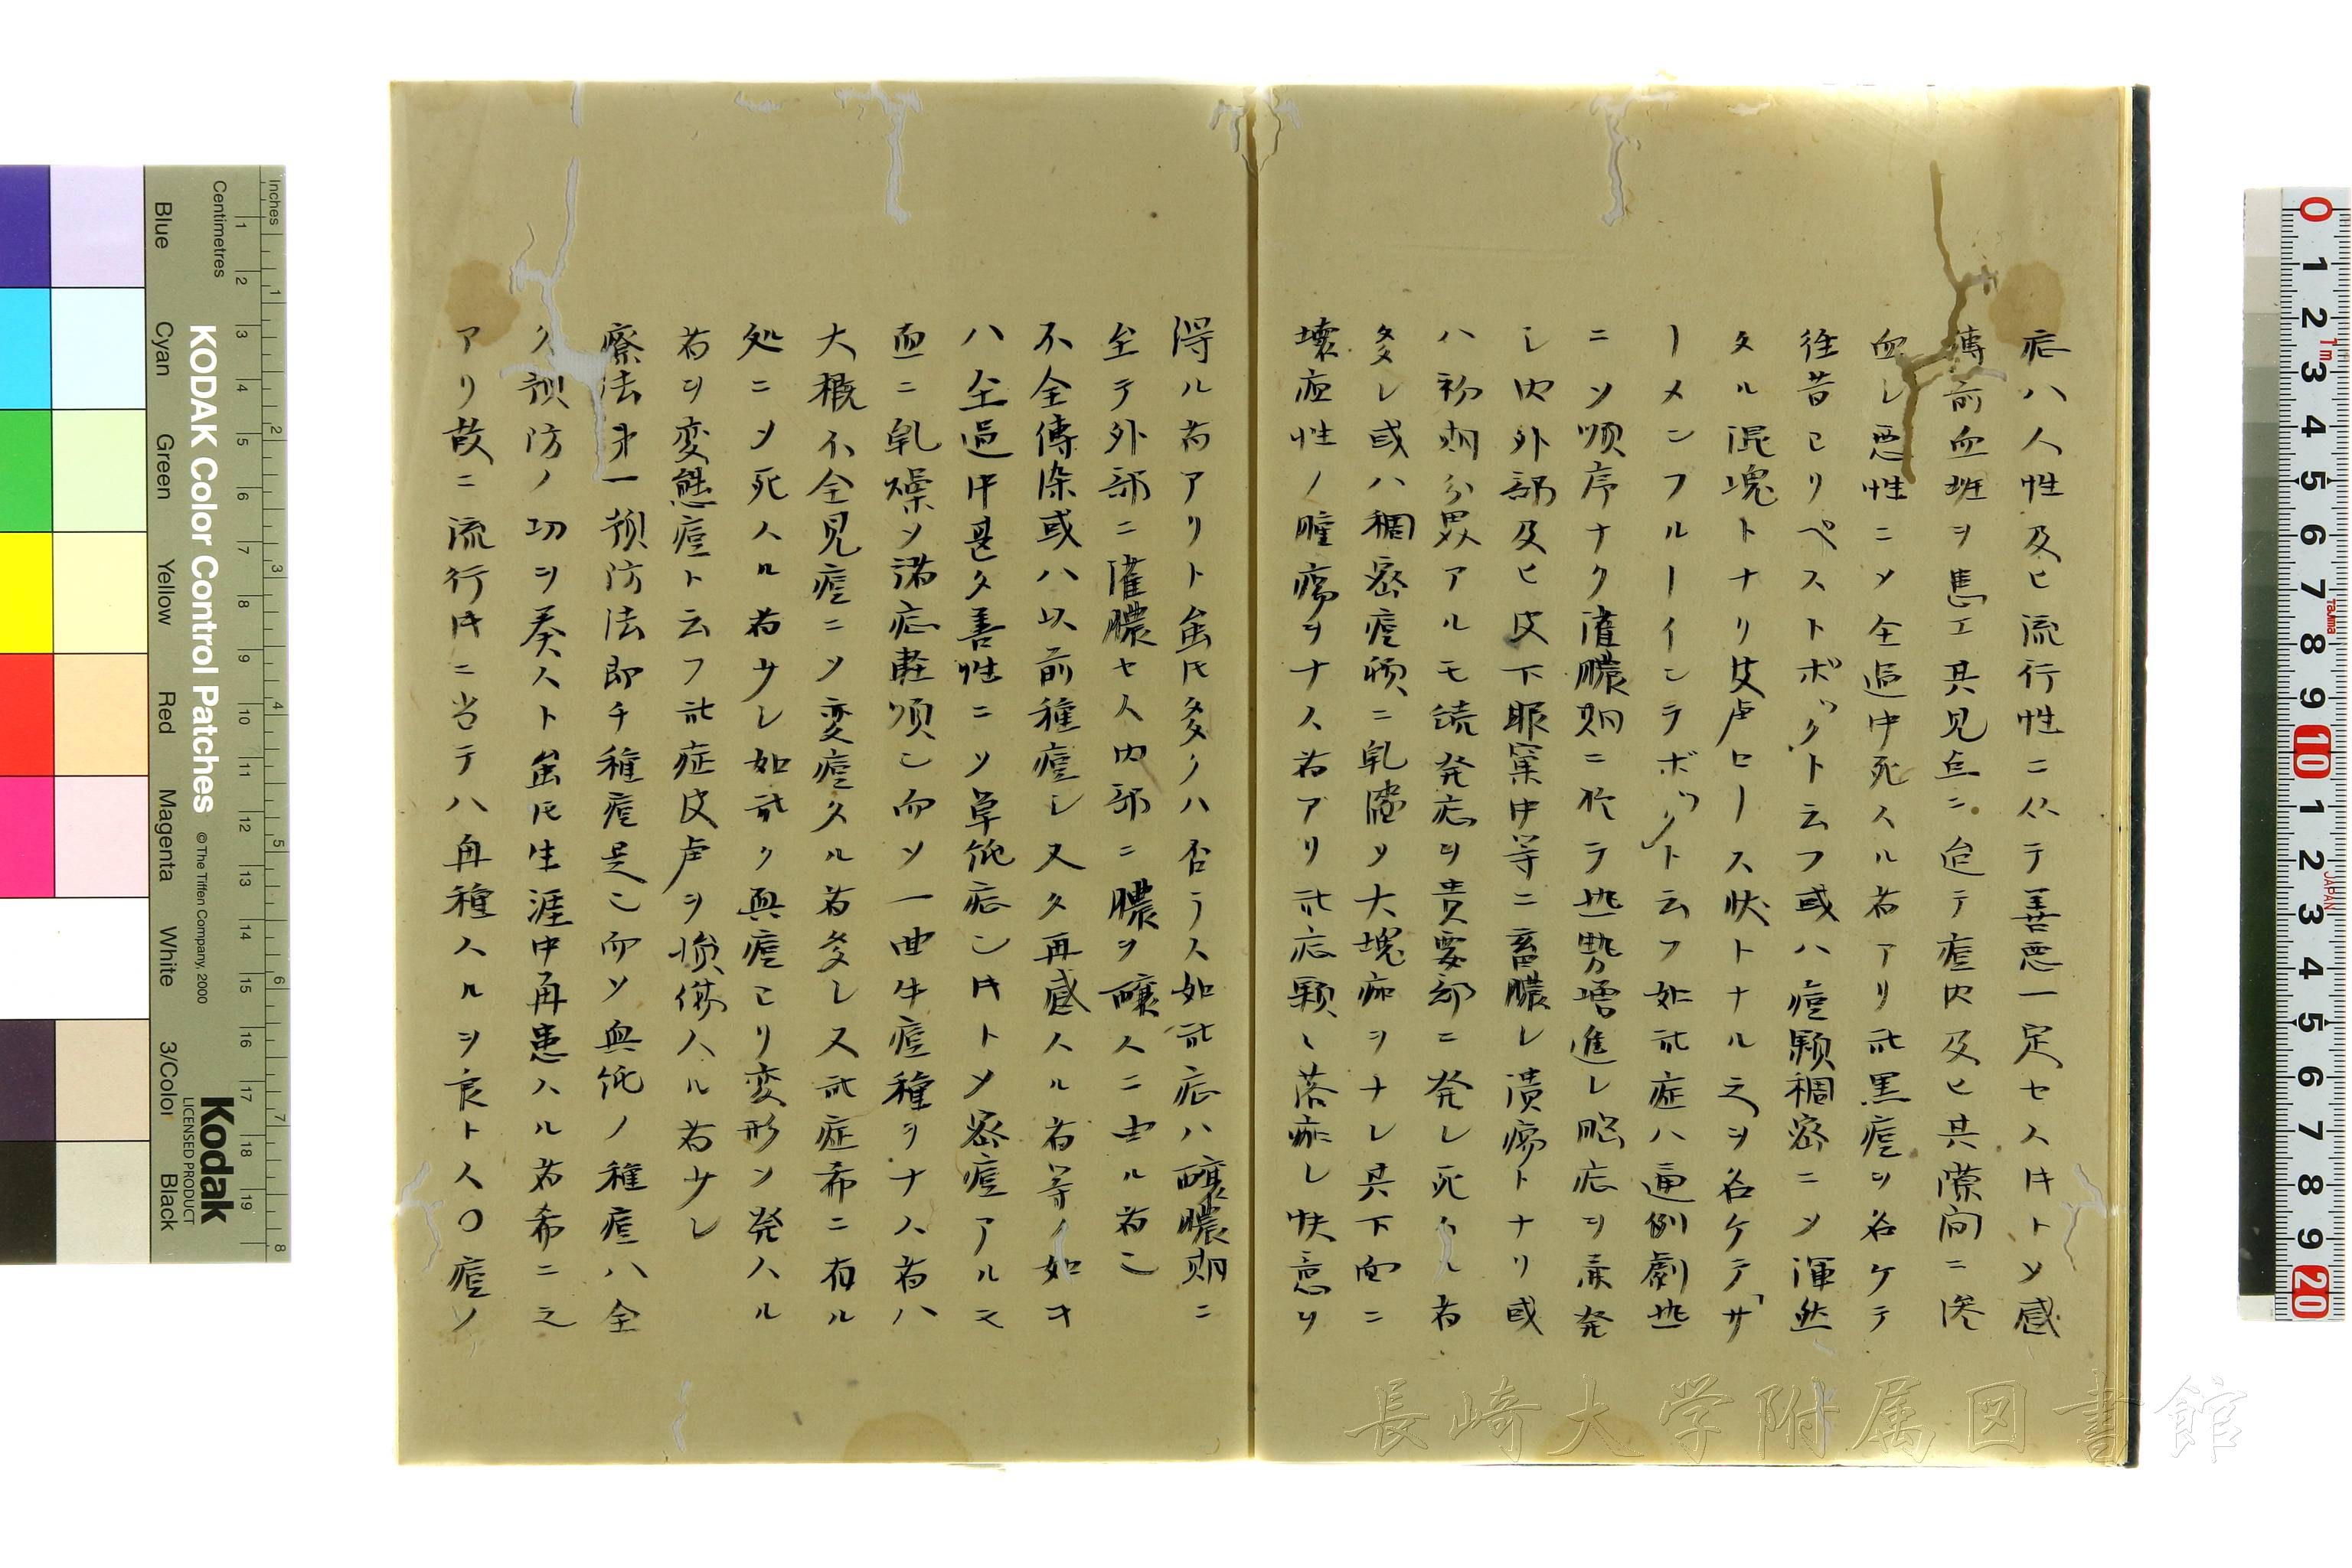 症ハ人性及ヒ流行性ニ仍テ善悪一定セス𪜈トソ感
傳前血斑ヲ馬エ其見点ニ迨テ痘内及ヒ其隙向ニ滲
血レ悪性ニメ全過中死スル者アリ此黒痘ヲ名ケテ
往昔ヨリペストボックト云フ或ハ痘顆稠密ニメ渾然
タル混塊トナリ皮膚セース状トナル之ヲ名ケテ「サ
ーメンフルーインテボックト云フ如此症ハ逼例劇盛
ニソ順序ナク潅膿期ニ於テ盛勢増進レ脳症ヲ兼発
レ内外部及ヒ皮下眼窠中等ニ蓄膿レ潰瘍トナリ或
ハ初期分界アルモ続発症ヲ貴要部ニ発レ死スル者
多レ或ハ稠密痘頓ニ乾燥メ大塊痂ヲナレ其下面ニ
壊疽性ノ腫瘍ヲナス者アリ此症顆々落痂レ快意ヲ
得ル者アリト雖𪜈多クハ否ラス如此症ハ醸膿期ニ
至テ外部ニ潅膿セス内部ニ膿ヲ醸スニ由ル者ニ
不全傳染或ハ以前種痘レ又タ再感スル者等ノ如キ
ハ全過中甚タ善性ニソ草他症ン𪜈トメ密痘アルモ
血ニ乾燥ソ諸症軽順ニ而ソ一回牛痘種ヲナス者ハ
大概不全見痘ニソ変痘スル者多レ又此症希ニ有ル
処ニソ死スル者少レ如此ク真痘ヨリ変形ン発スル
者ヲ変態痘ト云フ此症皮膚ヲ損傷スル者少レ
療法第一預防法即チ種痘是ニ而ソ無他ノ種痘ハ全
ク預防ノ功ヲ奏スト雖𪜈生涯中再患スル者希ニ之
アリ故ニ流行𪜈ニ当テハ再種スルヲ良トス〇痘ソ
Inches
Centimetres
Blue
Cyan
Green
Yellow
Red
Magenta
White
3/Color
Black
KODAK Color Control Patches
©The Tiffen Company, 2000
Kodak
LICENSED PRODUCT
長崎大学附属図書館